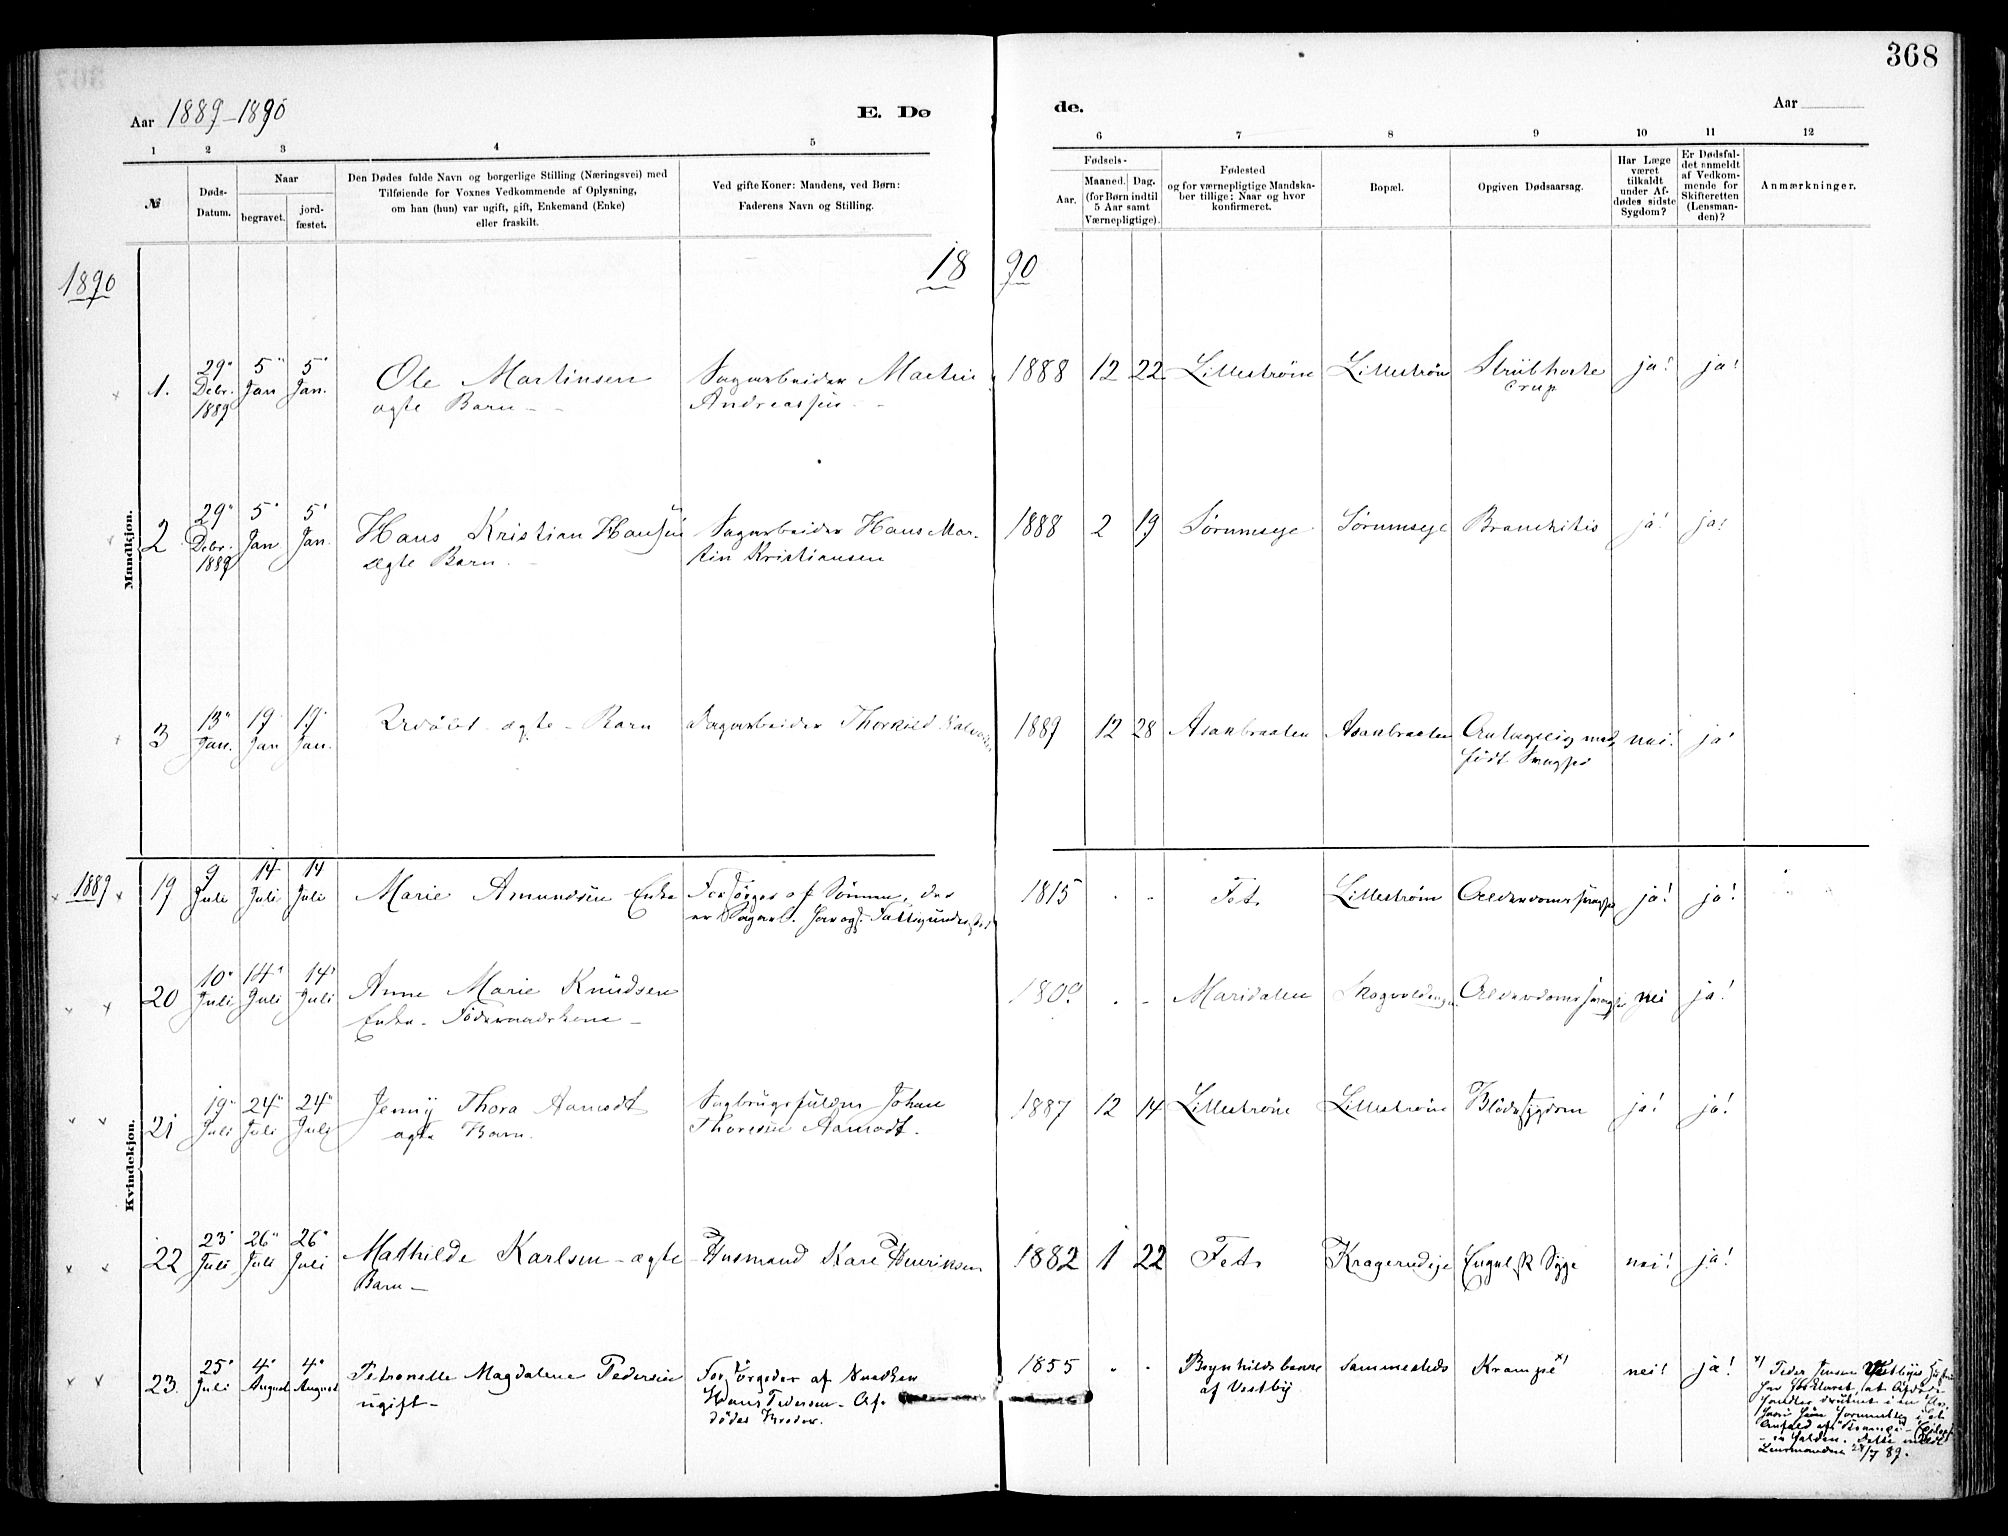 368
Aar 1889-1890
E. Dø
de.
Aar
1
2
3
4
5
6
7
8
9
10
11
12
№
Døds-
Datum.
Naar
begravet.
jord-
fæstet.
Den Dødes fulde Navn og borgerlige Stilling (Næringsvei) med
Tilføiende for Voxnes Vedkommende af Oplysning,
om han (hun) var ugift, gift, Enkemand (Enke)
eller fraskilt.
Ved gifte Koner: Mandens, ved Børn:
Faderens Navn og Stilling.
Fødsels-
Aar.
Maaned. Dag.
(for Børn indtil
5 Aar samt
Værnepligtige).
Fødested
og for værnepligtige Mandska-
ber tillige; Naar og hvor
konfirmeret.
Bopæl.
Opgiven Dødsaarsag.
Har Læge
været
tilkaldt
under Af-
dødes sidste
Sygdom?
Er Dødsfal-
det anmeldt
af Vedkom-
mende for
Skifteretten
(Lensman-
den)?
Anmærkninger.
1890
18 90
Mandkjøn.
1. 29" 5" 5" Ole Martinsen Sagarbeider Martin 1888 12 22 Lillestrøm Lillestrøm Strubhoste ja! ja!
Debr. Jan Jan. ægte Barn - - Andreassen - Crup
1889
2 29" 5" 5" Hans Kristian Hansen Sagarbeider Hans Mar- 1888 2 19 Sørumseje Sørumseje Bronchitis ja! ja!
Debr. Jan Jan. ægte Barn. - tin Kristiansen
1889
3 13" 19 19 Udøbt ægte - Barn Sagarbeider Thorkild 1889 12 28 Asakbraaten Asakbraaten Antagelig med- nei! ja!
Jan. Jan Jan. født Svaghed
1889
Kvindekjøn.
19 9 14 14 Marie Amundsen Enke Forsørges af Sønnen, der 1815 - - Fet Lillestrøm Alderdomssvaghed ja! ja!
Juli Juli Juli er Sagarb.
20 10" 14" 14" Anne Marie Knudsen 1809 - - Maridalen Alderdomssvaghed nei ja!
Juli Juli Juli Enke - Føderaadskone -
21 19" 24" 24" Jenny Thora Aamodt Sagbrugsfuldm Johan 1887 12 14 Lillestrøm Lillestrøm Blødersygdom ja! ja!
Juli Juli Juli ægte Barn. Thoresen Aamodt.
22 23" 26" 26" Mathilde Karlsen - ægte Husmand Karl Henriksen 1882 1 22 Fet Kragerudeje Engelsk Syge nei! ja!
Juli Juli Juli Barn -
23. 25" 4" 4" Petronelle Magdalene Pedersen Forsørgedes af Snedker 1855 - - Brynhildsbakke Sammesteds Krampe x) nei! ja!
Juli August August ugift - Hans Pedersen - Af- af Vestby
dødes Broder.
x) Peder Jensen Vestbys
har forklaret, at Afdøde
fandtes druknet i en
hvori hun formentlig i et
Anfald af Krampe
Dette meldt
Lensmanden 28/7 89.